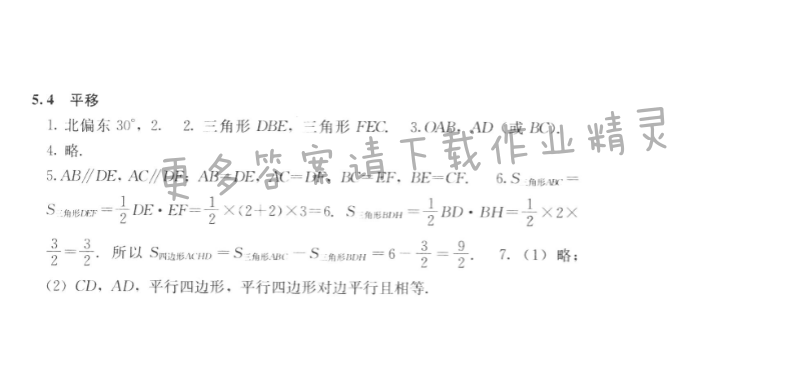 5.4 平移
1. 北偏东 30°, 2. 2. 三角形 DBE, 三角形 FEC. 3. OAB, AD (或 BC).
4. 略.
5. AB∥DE, AC∥DF; AB=DE, AC=DF, BC=EF, BE=CF. 6. S三角形ABC=
S三角形DEF=1/2 DE·EF=1/2×(2+2)×3=6. S三角形BDH=1/2 BD·BH=1/2×2×
3/2=3/2. 所以 S四边形ACHD=S三角形ABC-S三角形BDH=6-3/2=9/2. 7. (1) 略;
(2) CD, AD, 平行四边形, 平行四边形对边平行且相等.
更多答案请下载作业精灵